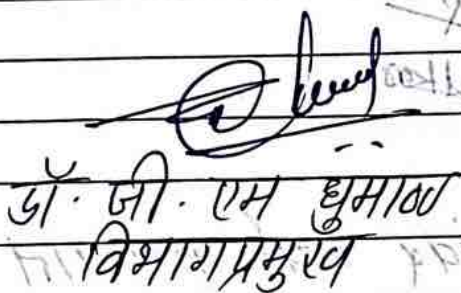 डॉ. जी. एम धुमाळ
विभागप्रमुख